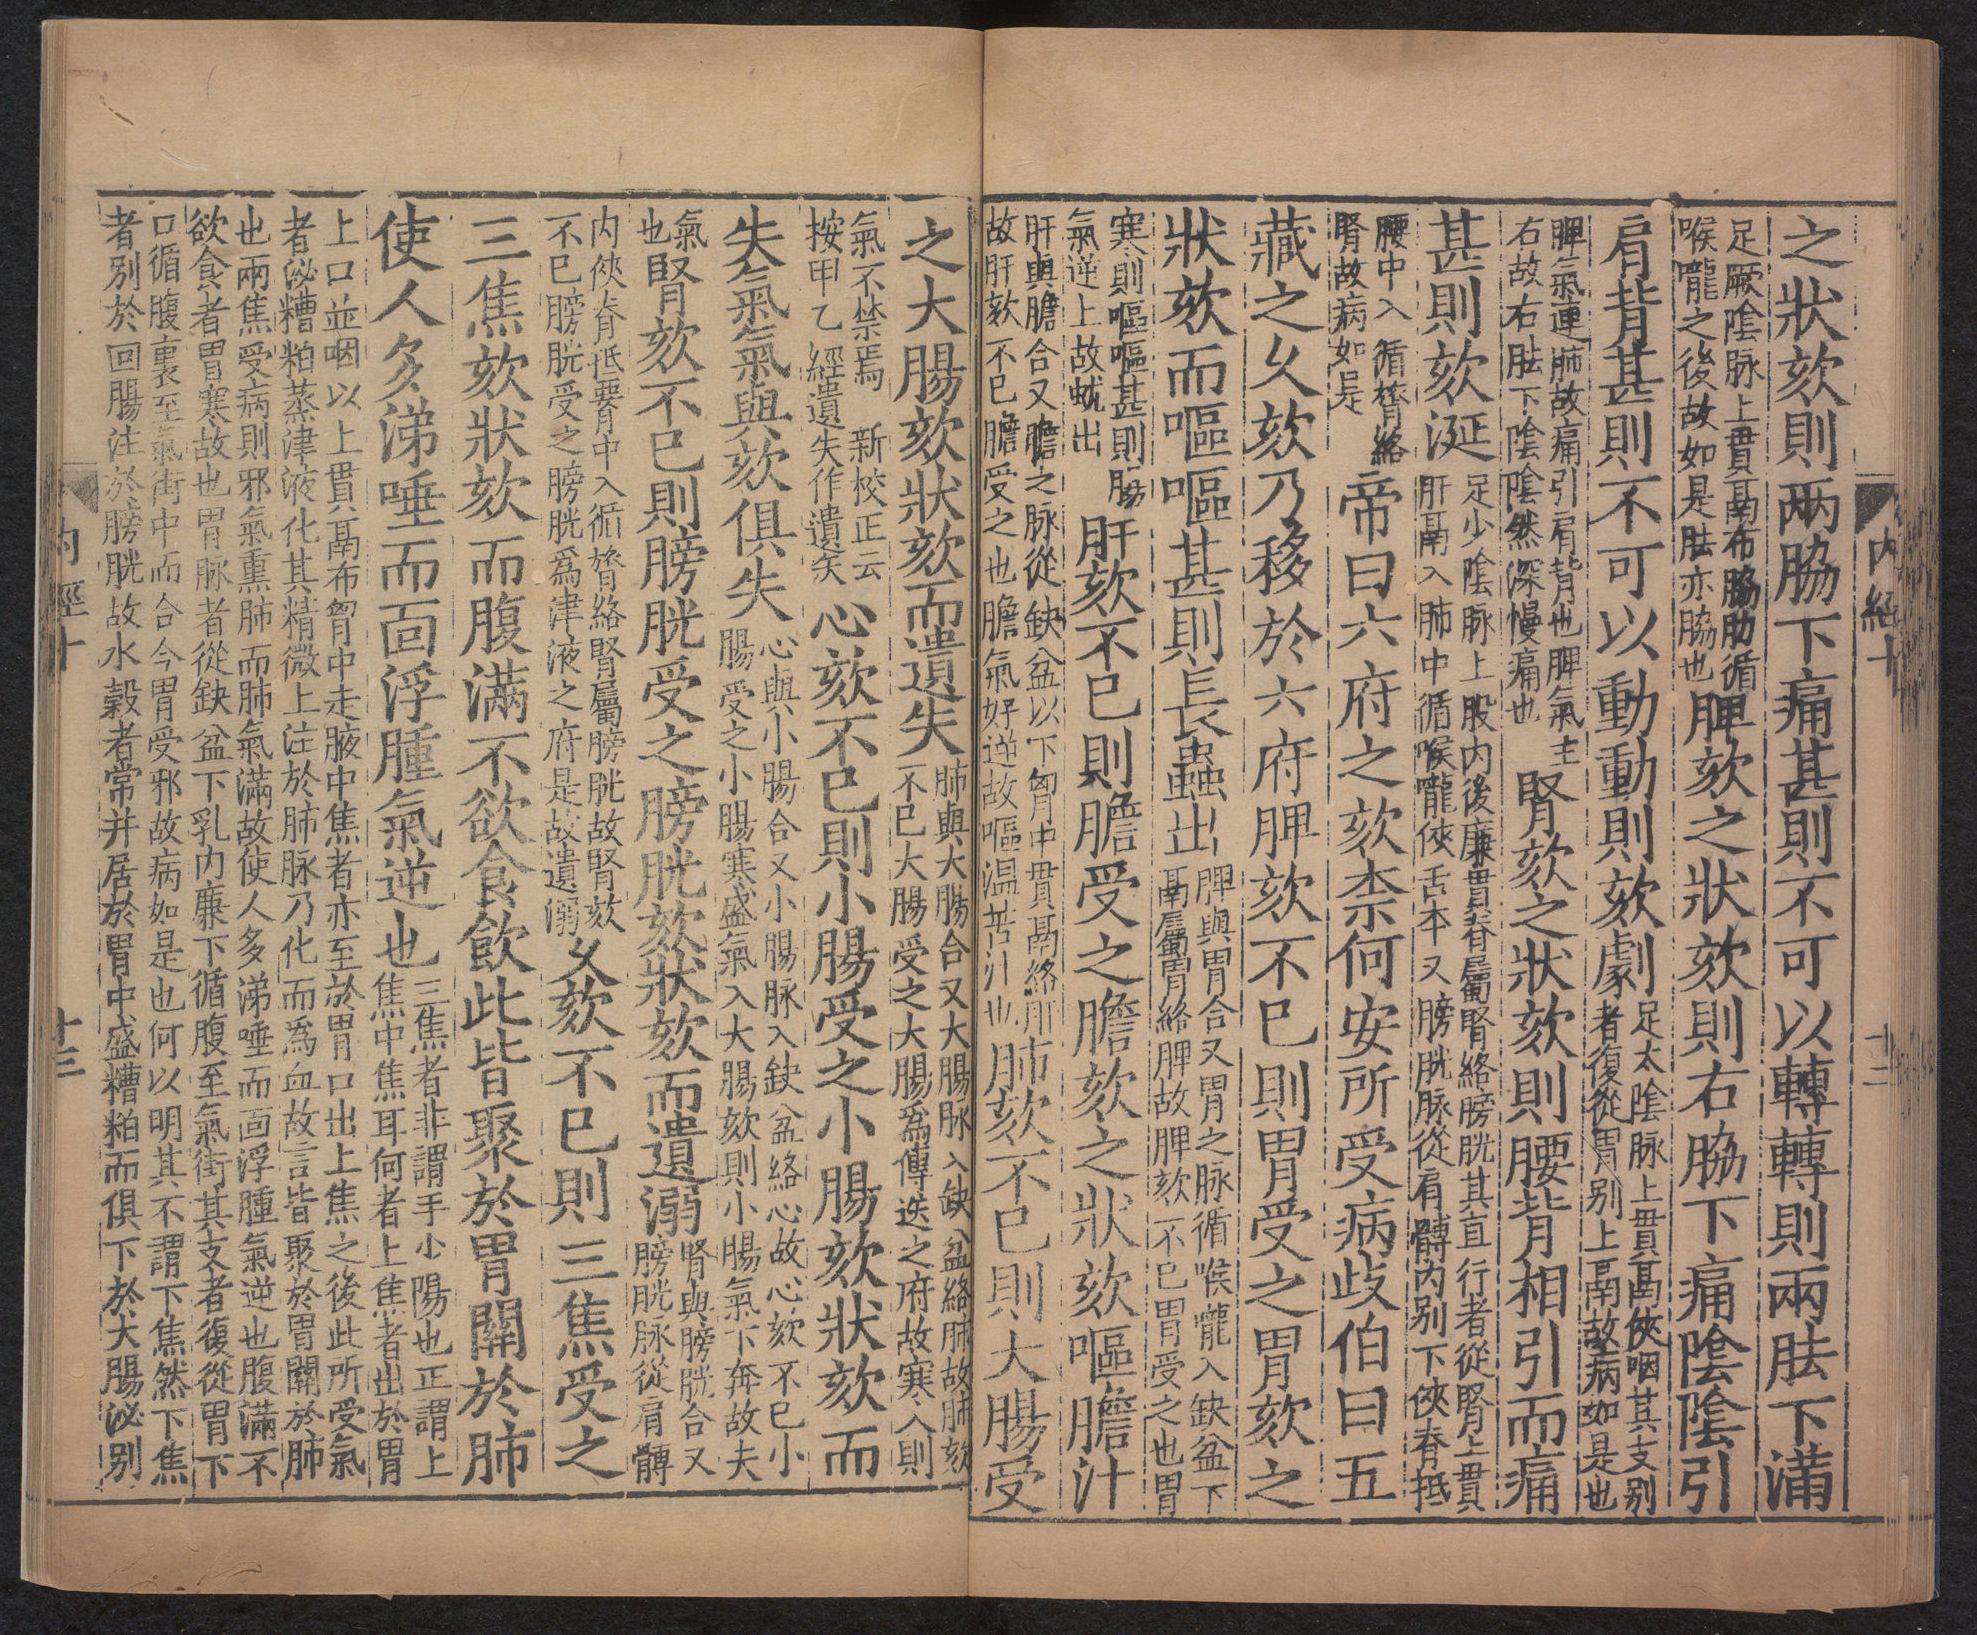 内經十
十二
之狀欬則兩脇下痛甚則不可以轉轉則兩胠下滿
足厥陰脉上貫鬲布脇肋循
喉嚨之後故如是胠亦脇也
脾欬之狀欬則右脇下痛陰陰引
肩背甚則不可以動動則欬劇
足太陰脉上貫鬲俠咽其支别
者復從胃别上鬲故病如是也
脾氣連肺故痛引肩背也脾氣主
右故右胠下陰陰然深慢痛也
腎欬之狀欬則腰背相引而痛
甚則欬涎
足少陰脉上股内後廉貫脊屬腎絡膀胱其直行者從腎上貫
肝鬲入肺中循喉嚨俠舌本又膀胱脉從肩髆内别下俠脊抵
腰中入循膂絡
腎故病如是
帝曰六府之欬柰何安所受病歧伯曰五
藏之久欬乃移於六府脾欬不已則胃受之胃欬之
狀欬而嘔嘔甚則長蟲出
脾與胃合又胃之脉循喉嚨入缺盆下
鬲屬胃絡脾故脾欬不已胃受之也胃
寒則嘔嘔甚則腸
氣逆上故蚘出
肝欬不已則膽受之膽欬之狀欬嘔膽汁
肝與膽合又膽之脉從缺盆以下胷中貫鬲絡肝
故肝欬不已膽受之也膽氣好逆故嘔温苦汁也
肺欬不已則大腸受
之大腸欬狀欬而遺失
肺與大腸合又大腸脉入缺盆絡肺故肺欬
不已大腸受之大腸爲傳送之府故寒入則
氣不禁焉 新校正云
按甲乙經遺失作遺矢
心欬不已則小腸受之小腸欬狀欬而
失氣氣與欬俱失
心與小腸合又小腸脉入缺盆絡心故心欬不已小
腸受之小腸寒盛氣入大腸欬則小腸氣下奔故失
氣
也
腎欬不已則膀胱受之膀胱欬狀欬而遺溺
腎與膀胱合又
膀胱脉從肩髆
内俠脊抵䏚中入循膂絡腎屬膀胱故腎欬
不已膀胱受之膀胱爲津液之府是故遺溺
久欬不已則三焦受之
三焦欬狀欬而腹滿不欲食飲此皆聚於胃關於肺
使人多涕唾而面浮腫氣逆也
三焦者非謂手少陽也正謂上
焦中焦耳何者上焦者出於胃
上口並咽以上貫鬲布胷中走腋中焦者亦至於胃口出上焦之後此所受氣
者泌糟粕蒸津液化其精微上注於肺脉乃化而爲血故言皆聚於胃關於肺
也兩焦受病則邪氣熏肺而肺氣滿故使人多涕唾而面浮腫氣逆也腹滿不
欲食者胃寒故也胃脉者從缺盆下乳内廉下循腹至氣街其支者復從胃下
口循腹裏至氣街中而合今胃受邪故病如是也何以明其不謂下焦然下焦
者别於回腸注於膀胱故水穀者常并居於胃中盛糟粕而俱下於大腸泌别
内經十
十三